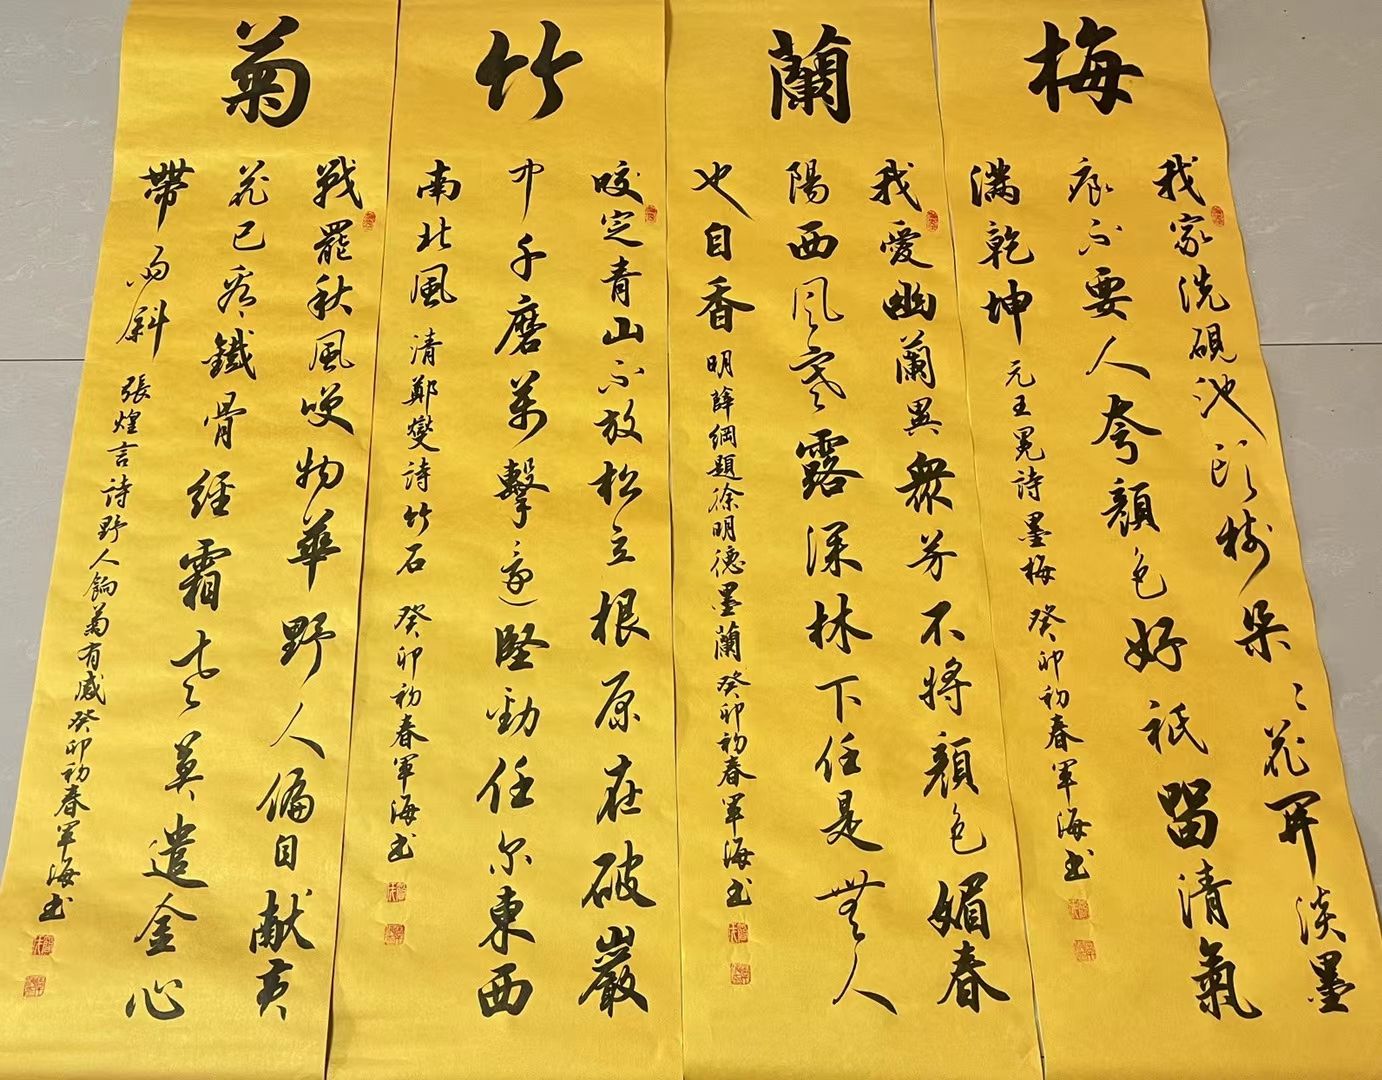 梅
我家洗硯池頭樹朵〻花開淡墨
痕不要人夸顏色好祇留清氣
滿乾坤 元王冕詩墨梅 癸卯初春軍海书
蘭
我愛幽蘭異眾芳不將顏色媚春
陽西風寒露深林下任是無人
也自香 明薛綱題徐明德墨蘭 癸卯初春軍海书
竹
咬定青山不放松立根原在破巖
中千磨萬擊還堅勁任尔東西
南北風 清鄭燮詩竹石 癸卯初春軍海书
菊
戰罷秋風笑物華野人偏自献黃
花已看鐵骨經霜老莫遣金心
帶雨斜 張煌言詩野人餉菊有感 癸卯初春軍海书